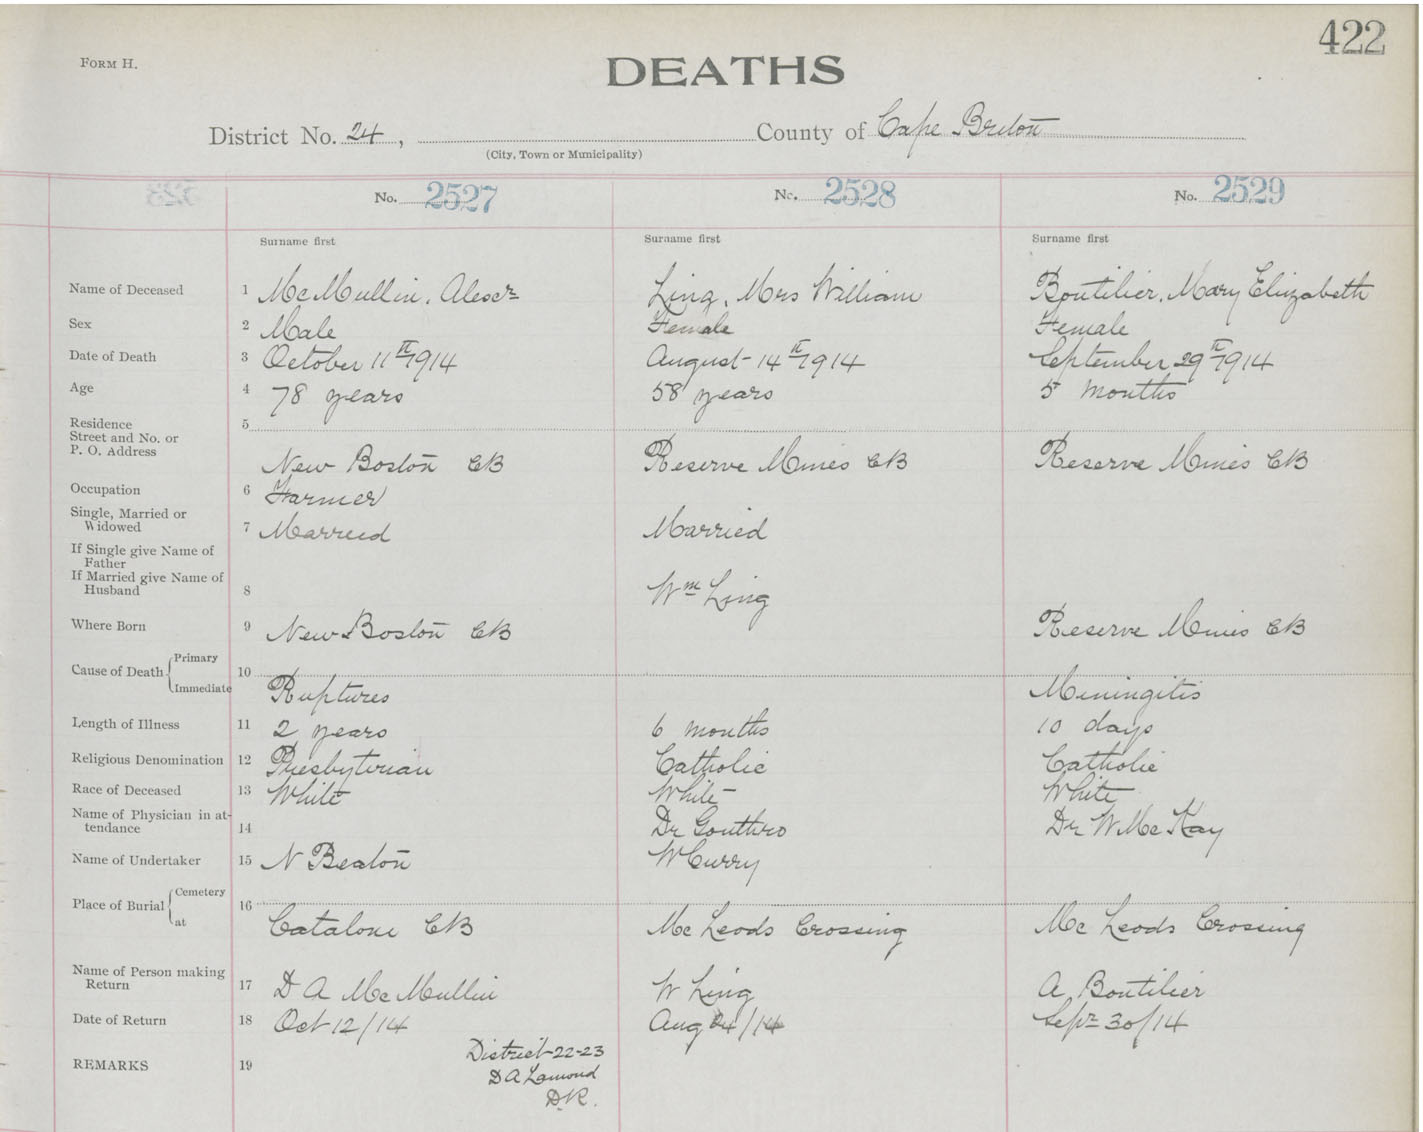 422
FORM H.
DEATHS
District No. 24, County of Cape Breton
(City, Town or Municipality)
No. 2527 No. 2528 No. 2529
Surname first Surname first Surname first
Name of Deceased 1 McMullin, Alexr Ling, Mrs William Boutilier, Mary Elizabeth
Sex 2 Male Female Female
Date of Death 3 October 11th 1914 August 14th 1914 September 29th 1914
Age 4 78 years 58 years 5 months
Residence 5
Street and No. or
P. O. Address New Boston CB Reserve Mines CB Reserve Mines CB
Occupation 6 Farmer
Single, Married or
Widowed 7 Married Married
If Single give Name of
Father
If Married give Name of
Husband 8 Wm Ling
Where Born 9 New Boston CB Reserve Mines CB
Cause of Death Primary 10
Immediate Ruptures Meningitis
Length of Illness 11 2 years 6 months 10 days
Religious Denomination 12 Presbyterian Catholic Catholic
Race of Deceased 13 White White White
Name of Physician in at-
tendance 14 Dr Gouthro Dr W McKay
Name of Undertaker 15 N Beaton W Curry
Place of Burial Cemetery 16
at Catalone CB McLeods Crossing McLeods Crossing
Name of Person making
Return 17 D A McMullin W Ling A Boutilier
Date of Return 18 Oct 12/14 Aug /14 Sepr 30/14
REMARKS 19 District 22-23
D A Lamond
D.R.